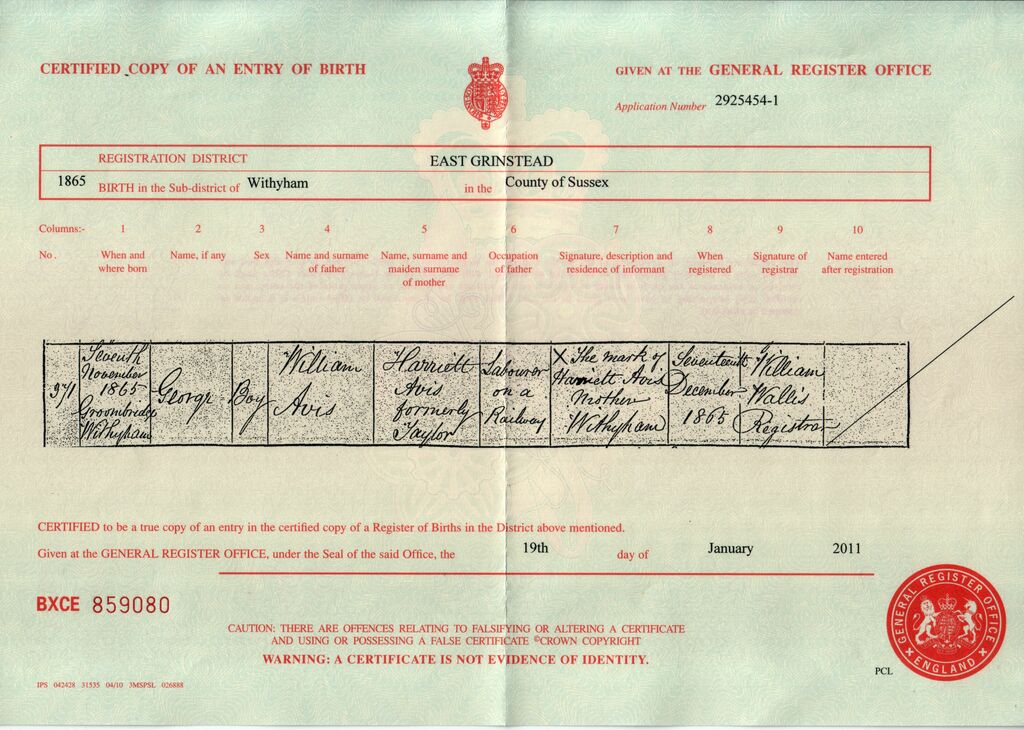 CERTIFIED COPY OF AN ENTRY OF BIRTH
GIVEN AT THE GENERAL REGISTER OFFICE
Application Number 2925454-1
REGISTRATION DISTRICT EAST GRINSTEAD
1865 BIRTH in the Sub-district of Withyham in the County of Sussex
Columns:- 1 2 3 4 5 6 7 8 9 10
No. When and where born Name, if any Sex Name and surname of father Name, surname and maiden surname of mother Occupation of father Signature, description and residence of informant When registered Signature of registrar Name entered after registration
371
Seventh
November
1865
Groombridge
Withyham
George
Boy
William
Avis
Harriett
Avis
formerly
Taylor
Labourer
on a
Railway
X The mark of
Harriett Avis
Mother
Withyham
Seventeenth
December
1865
William
Wallis
Registrar
CERTIFIED to be a true copy of an entry in the certified copy of a Register of Births in the District above mentioned.
Given at the GENERAL REGISTER OFFICE, under the Seal of the said Office, the 19th day of January 2011
BXCE 859080
CAUTION: THERE ARE OFFENCES RELATING TO FALSIFYING OR ALTERING A CERTIFICATE
AND USING OR POSSESSING A FALSE CERTIFICATE ©CROWN COPYRIGHT
WARNING: A CERTIFICATE IS NOT EVIDENCE OF IDENTITY.
GENERAL REGISTER OFFICE
ENGLAND
PCL
IPS 042428 31535 04/10 3MSPSL 026888